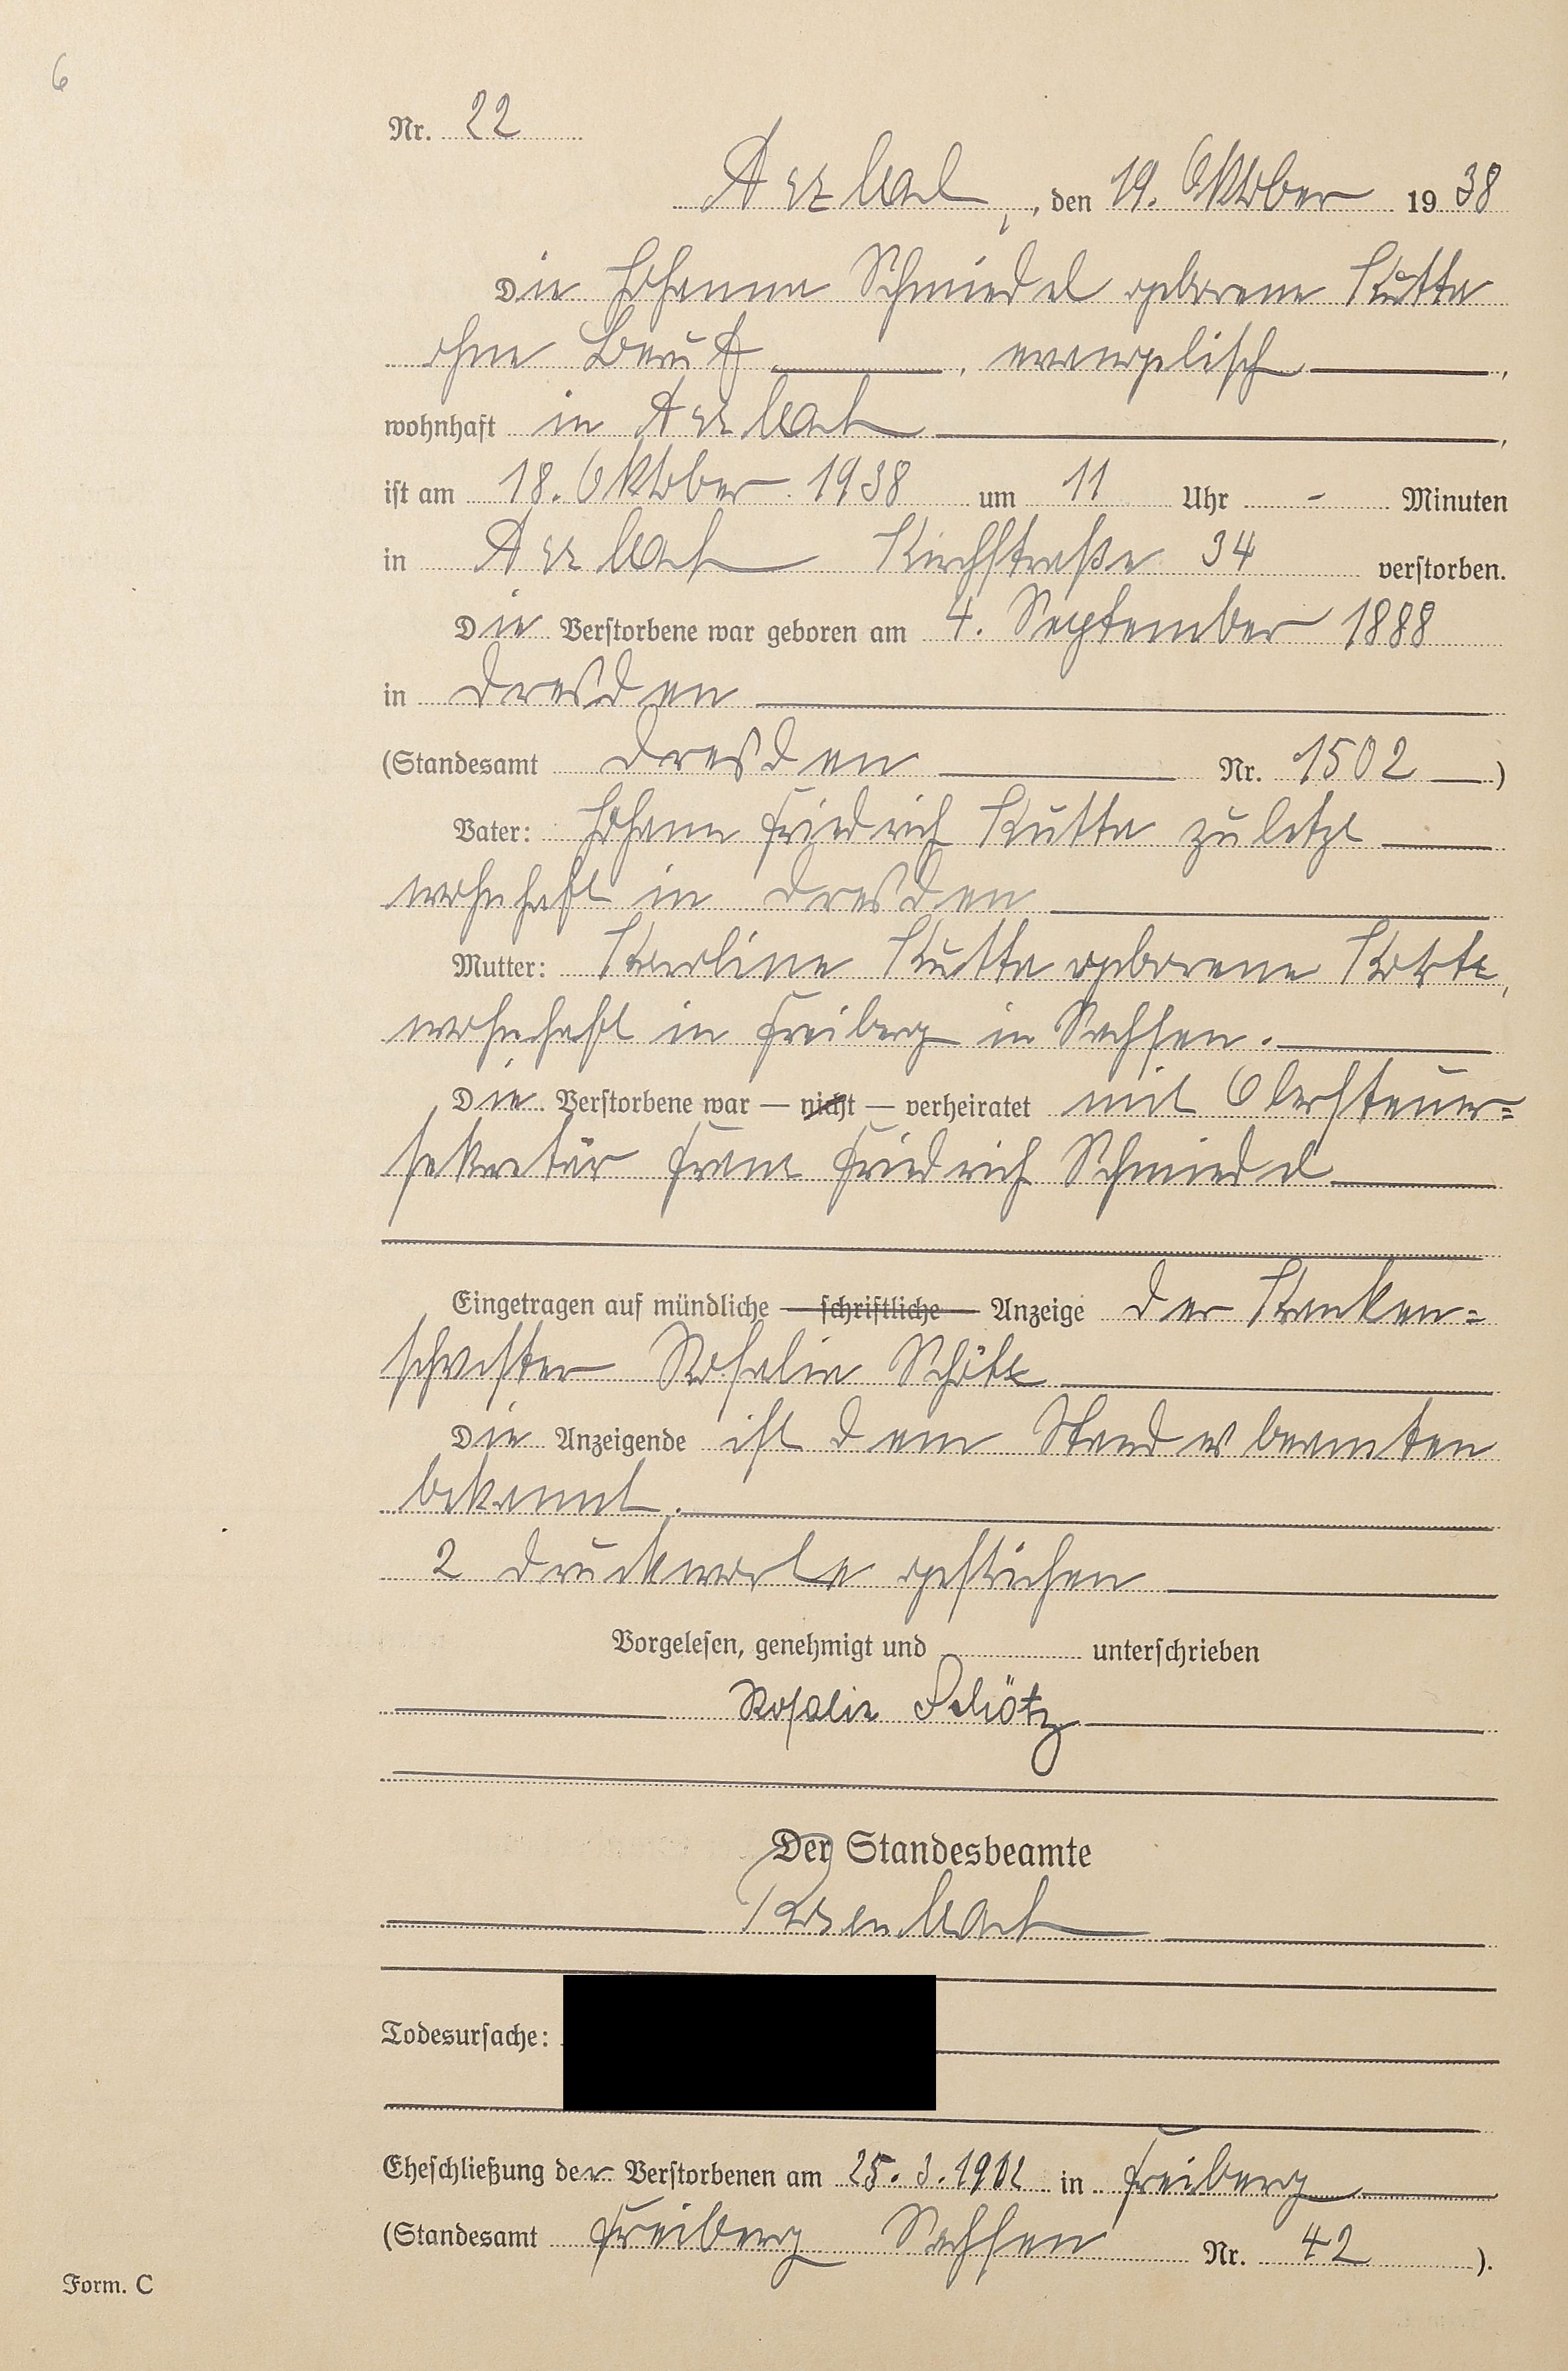 6
Nr. 22
Arzbach, den 19. Oktober 1938
Die Johanna Schmiedel geborene Kutta
ohne Beruf, evangelisch,
wohnhaft in Arzbach,
ist am 18. Oktober 1938 um 11 Uhr - Minuten
in Arzbach Kirchstraße 34 verstorben.
Die Verstorbene war geboren am 4. September 1888
in Dresden
(Standesamt Dresden Nr. 1502)
Vater: Johann Friedrich Kutta zuletzt
wohnhaft in Dresden
Mutter: Karoline Kutta geborene
wohnhaft in Freiberg in Sachsen.
Die Verstorbene war — nicht — verheiratet mit Obersteuer=
sekretär Franz Friedrich Schmiedel
Eingetragen auf mündliche — schriftliche — Anzeige der Kranken=
schwester Rosalie Schötz
Die Anzeigende ist dem Standesbeamten
bekannt.
2 Druckworte gestrichen
Vorgelesen, genehmigt und unterschrieben
Rosalie Schötz
Der Standesbeamte
Todesursache:
Eheschließung der Verstorbenen am 25. 3. 1912 in Freiberg
(Standesamt Freiberg Sachsen Nr. 42).
Form. C